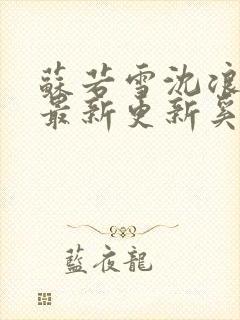 蘇若雪沈浪
最新更新奚
藍夜龍